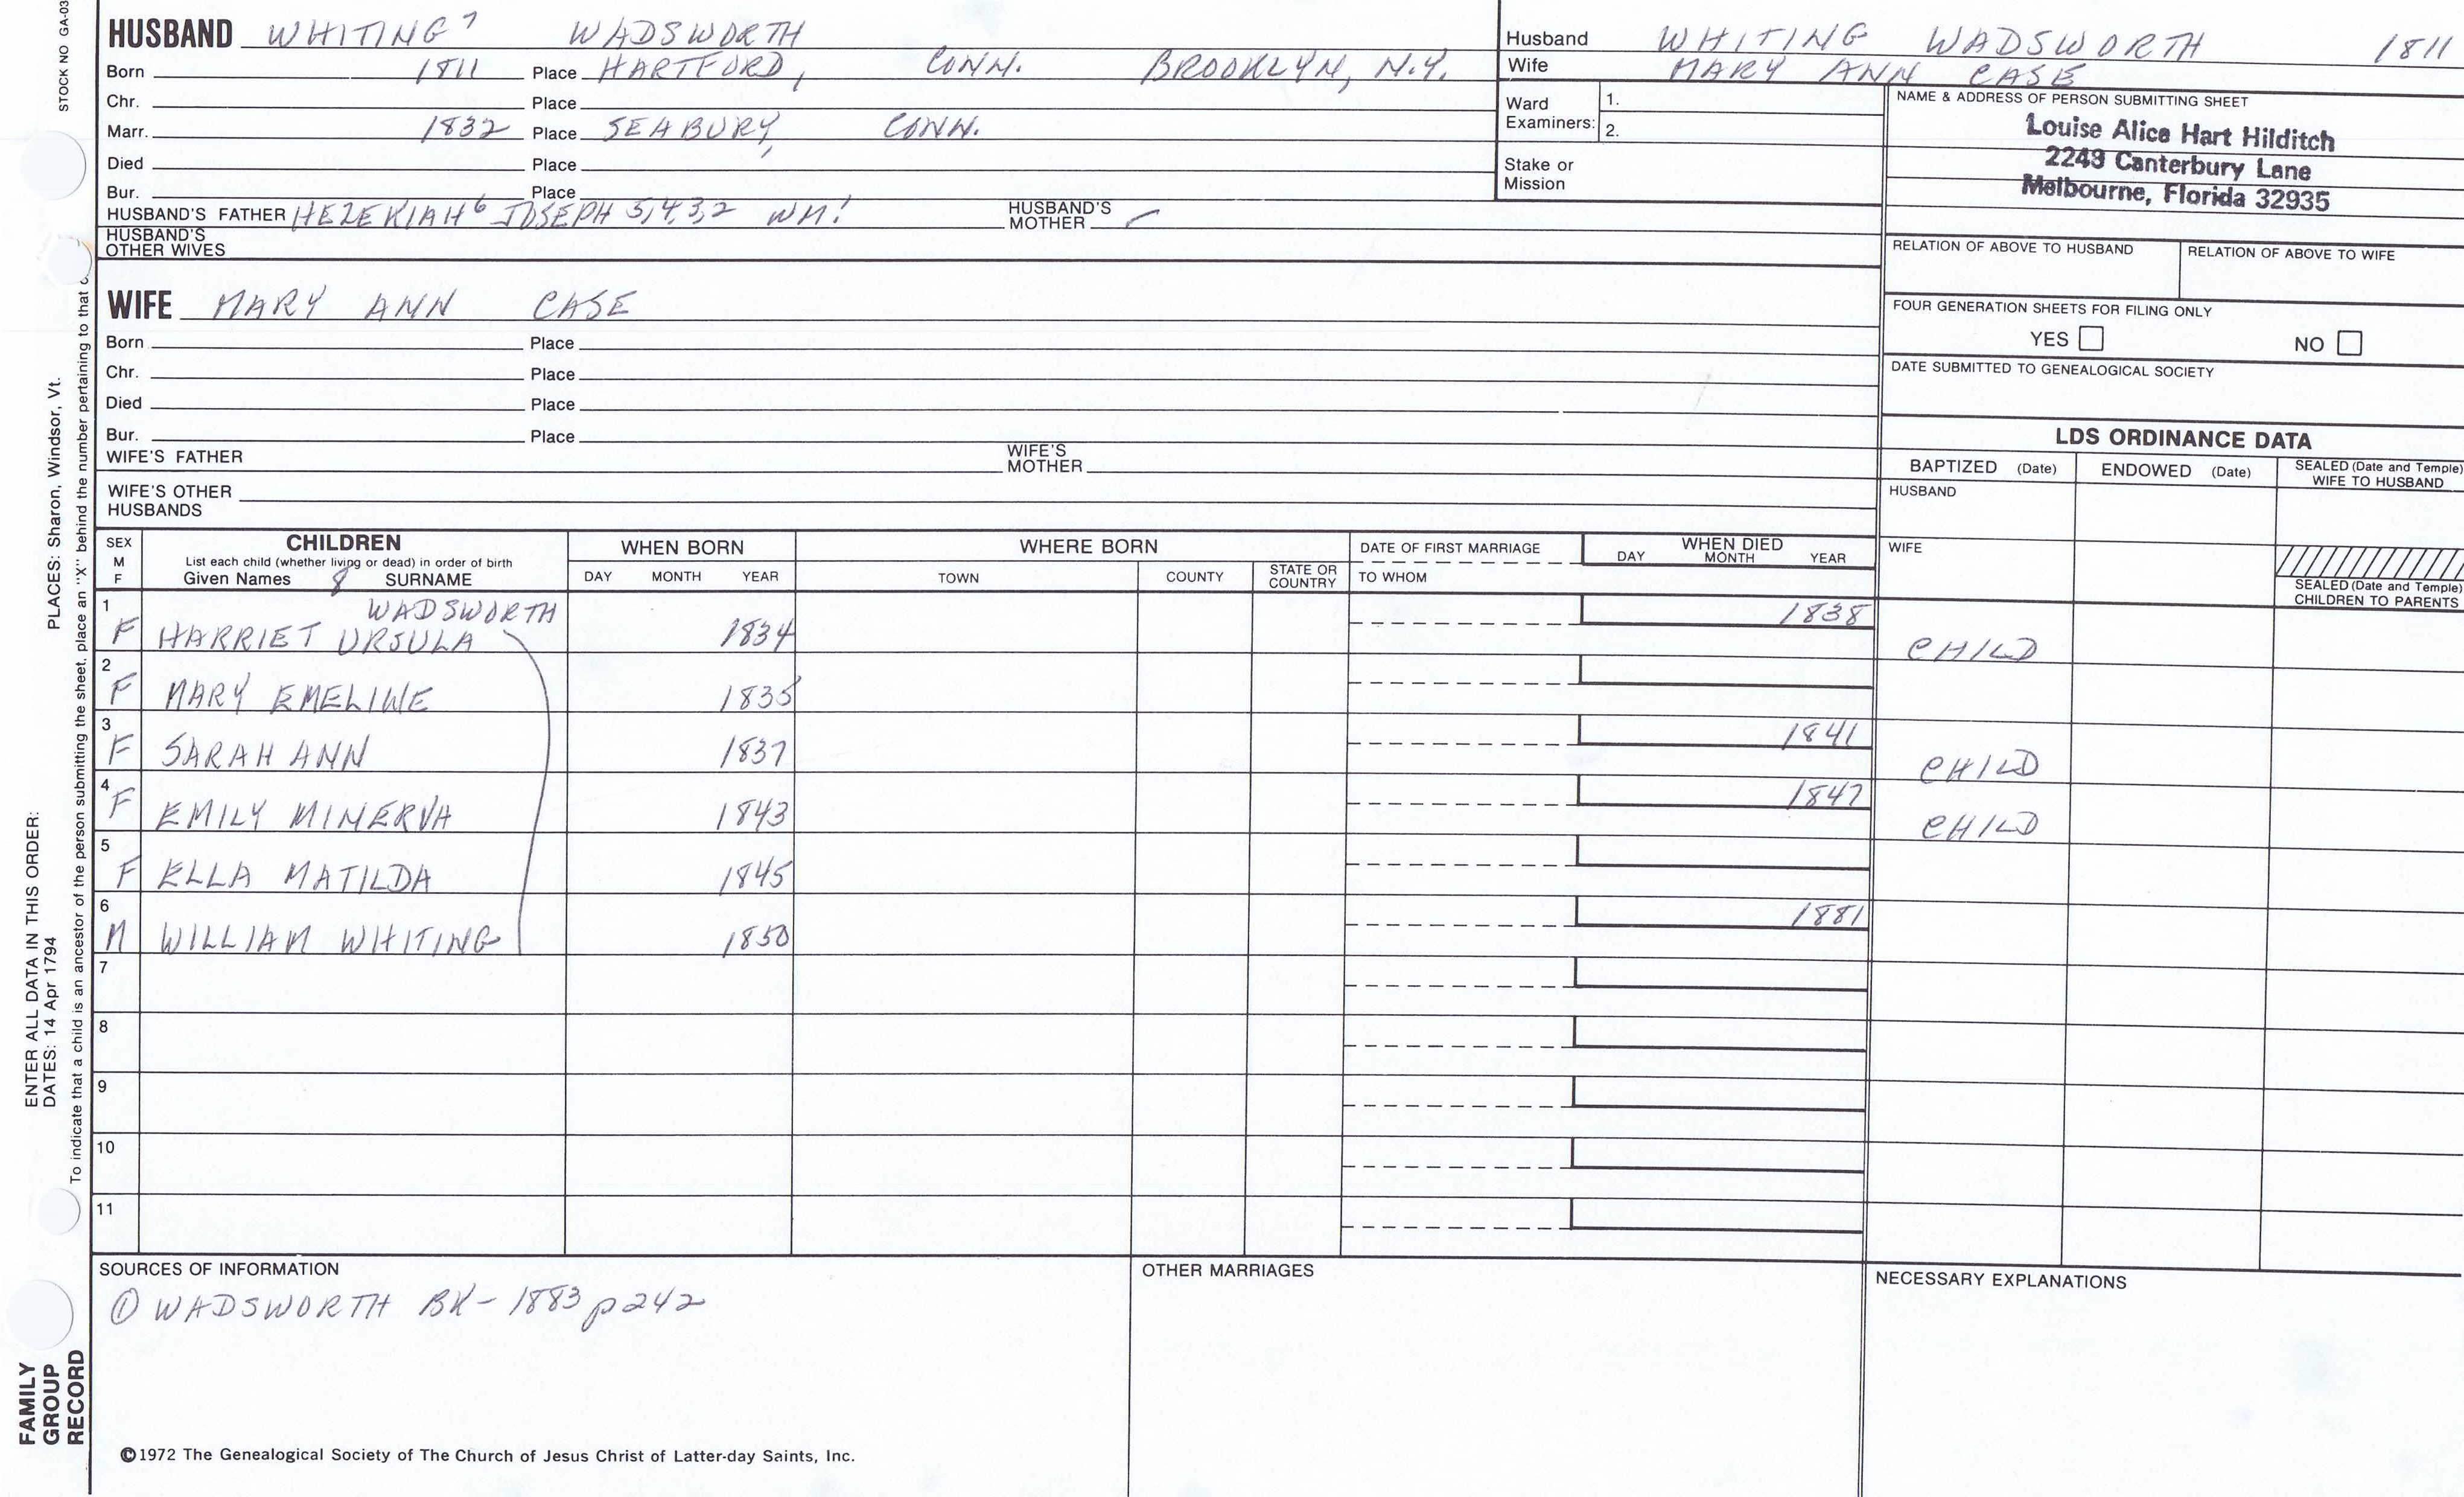 STOCK NO GA-03
HUSBAND WHITING 7 WADSWORTH
Born 1811 Place HARTFORD, CONN. BROOKLYN, N.Y.
Chr. Place
Marr. 1832 Place SEABURY, CONN.
Died Place
Bur. Place
HUSBAND'S FATHER HEZEKIAH 6 JOSEPH 5,4,3,2 WM! HUSBAND'S MOTHER
HUSBAND'S OTHER WIVES
Husband WHITING WADSWORTH 1811
Wife MARY ANN CASE
Ward Examiners: 1.
2.
Stake or Mission
NAME & ADDRESS OF PERSON SUBMITTING SHEET
Louise Alice Hart Hilditch
2243 Canterbury Lane
Melbourne, Florida 32935
RELATION OF ABOVE TO HUSBAND RELATION OF ABOVE TO WIFE
FOUR GENERATION SHEETS FOR FILING ONLY
YES NO
DATE SUBMITTED TO GENEALOGICAL SOCIETY
WIFE MARY ANN CASE
Born Place
Chr. Place
Died Place
Bur. Place
WIFE'S FATHER WIFE'S MOTHER
WIFE'S OTHER HUSBANDS
LDS ORDINANCE DATA
BAPTIZED (Date) ENDOWED (Date) SEALED (Date and Temple) WIFE TO HUSBAND
HUSBAND
WIFE
SEALED (Date and Temple) CHILDREN TO PARENTS
SEX M F CHILDREN WHEN BORN WHERE BORN DATE OF FIRST MARRIAGE WHEN DIED
List each child (whether living or dead) in order of birth
Given Names 8 SURNAME DAY MONTH YEAR TOWN COUNTY STATE OR COUNTRY TO WHOM DAY MONTH YEAR
1 WADSWORTH 1838
F HARRIET URSULA 1834 CHILD
2
F MARY EMELINE 1835
3 1841
F SARAH ANN 1837 CHILD
4 1847
F EMILY MINERVA 1843 CHILD
5
F ELLA MATILDA 1845
6 1881
M WILLIAM WHITING 1850
7
8
9
10
11
SOURCES OF INFORMATION OTHER MARRIAGES NECESSARY EXPLANATIONS
① WADSWORTH BK - 1883 p 242
©1972 The Genealogical Society of The Church of Jesus Christ of Latter-day Saints, Inc.
FAMILY GROUP RECORD
ENTER ALL DATA IN THIS ORDER:
DATES: 14 Apr 1794 PLACES: Sharon, Windsor, Vt.
To indicate that a child is an ancestor of the person submitting the sheet, place an "X" behind the number pertaining to that